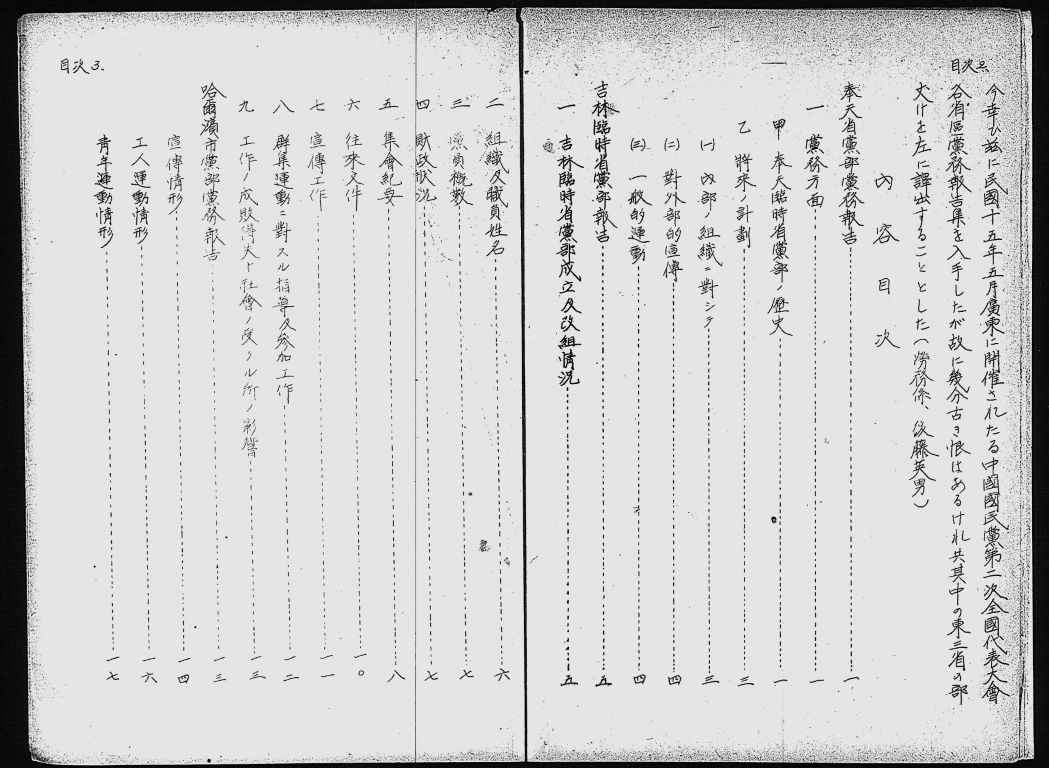 目次 2.
今幸ひ茲に民國十五年五月廣東に開催されたる中國國民黨第二次全國代表大會
各省區黨務報告集を入手したが故に幾分古き恨はあるけれ共其中の東三省の部
丈けを左に譯出することとした(勞務係、後藤英男)
內容目次
奉天省黨部黨務報告 一
一 黨務方面 一
甲 奉天臨時省黨部ノ歷史 一
乙 將來ノ計劃 三
(一) 內部ノ組織ニ對シテ 三
(二) 對外部的宣傳 四
(三) 一般的運動 四
吉林臨時省黨部報告 五
一 吉林臨時省黨部成立及改組情況 五
目次 3.
二 組織及職員姓名 六
三 黨員概數 七
四 財政狀況 七
五 集會紀要 八
六 往來文件 一〇
七 宣傳工作 一一
八 群集運動ニ對スル指導及參加工作 一二
九 工作ノ成敗得失ト社會ノ受クル所ノ影響 一三
哈爾濱市黨部黨務報告 一三
宣傳情形 一四
工人運動情形 一六
青年運動情形 一七